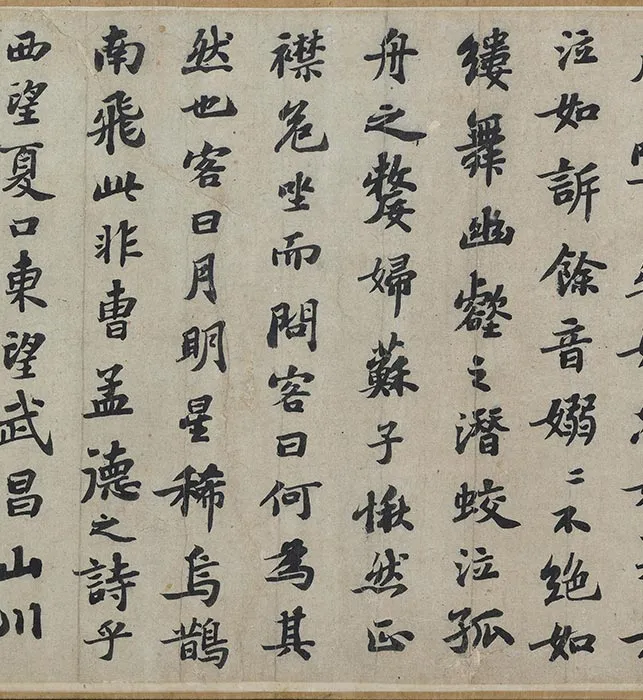 泣如訴餘音嫋〻不絶如
縷舞幽壑之潛蛟泣孤
舟之嫠婦蘇子愀然正
襟危坐而問客曰何為其
然也客曰月明星稀烏鵲
南飛此非曹孟德之詩乎
西望夏口東望武昌山川